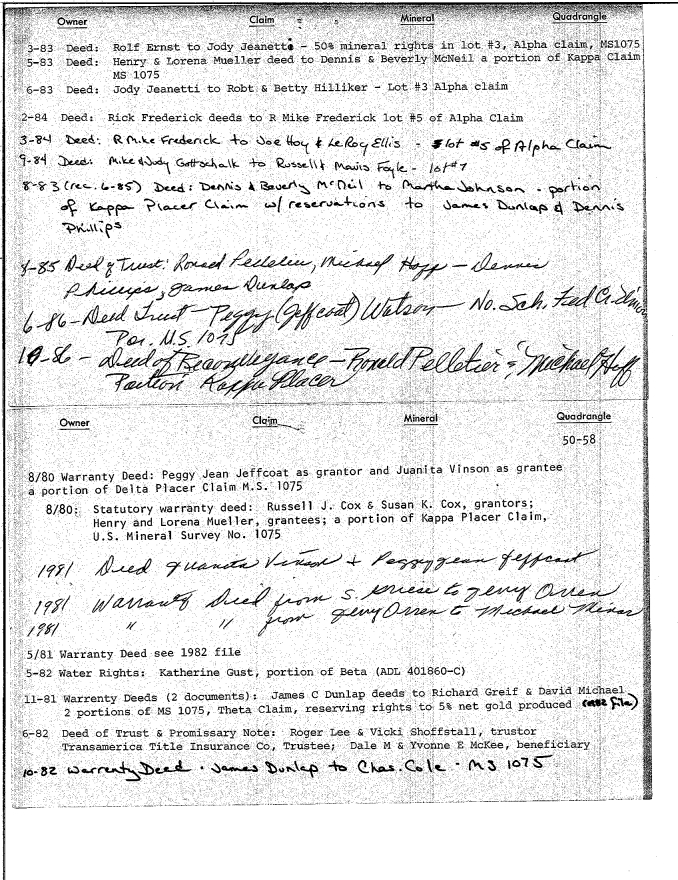 Owner Claim Mineral Quadrangle
3-83 Deed: Rolf Ernst to Jody Jeanette - 50% mineral rights in lot #3, Alpha claim, MS1075
5-83 Deed: Henry & Lorena Mueller deed to Dennis & Beverly McNeil a portion of Kappa Claim
MS 1075
6-83 Deed: Jody Jeanetti to Robt & Betty Hilliker - Lot #3 Alpha claim
2-84 Deed: Rick Frederick deeds to R Mike Frederick lot #5 of Alpha Claim
3-84 Deed: R Mike Frederick to Joe Hoy & LeRoy Ellis - lot #5 of Alpha Claim
9-84 Deed: Mike & Judy Gottschalk to Russell & Mavis Foyle - lot #7
8-83 (rec. 6-85) Deed: Dennis & Beverly McNeil to Martha Johnson - portion
of Kappa Placer Claim w/ reservations to James Dunlap & Dennis
Phillips
8-85 Deed of Trust: Ronald Pelletier, Michael Hoff - Dennis
Phillips, James Dunlap
6-86 - Deed Trust - Peggy (Jeffcoat) Watson - No. Sch. Fed Cr.
Por. M.S. 1075
10-86 - Deed of - Ronald Pelletier & Michael Hoff
Portion Kappa Placer
Owner Claim Mineral Quadrangle
50-58
8/80 Warranty Deed: Peggy Jean Jeffcoat as grantor and Juanita Vinson as grantee
a portion of Delta Placer Claim M.S. 1075
8/80: Statutory warranty deed: Russell J. Cox & Susan K. Cox, grantors;
Henry and Lorena Mueller, grantees; a portion of Kappa Placer Claim,
U.S. Mineral Survey No. 1075
1981 Deed Juanita Vinson + Peggy Jean Jeffcoat
1981 Warranty Deed from S. to Jerry Orren
1981 " " from Jerry Orren to Michael
5/81 Warranty Deed see 1982 file
5-82 Water Rights: Katherine Gust, portion of Beta (ADL 401860-C)
11-81 Warrenty Deeds (2 documents): James C Dunlap deeds to Richard Greif & David Michael
2 portions of MS 1075, Theta Claim, reserving rights to 5% net gold produced (1982 file)
6-82 Deed of Trust & Promissary Note: Roger Lee & Vicki Shoffstall, trustor
Transamerica Title Insurance Co, Trustee; Dale M & Yvonne E McKee, beneficiary
10-82 Warrenty Deed - James Dunlap to Chas. Cole - MS 1075